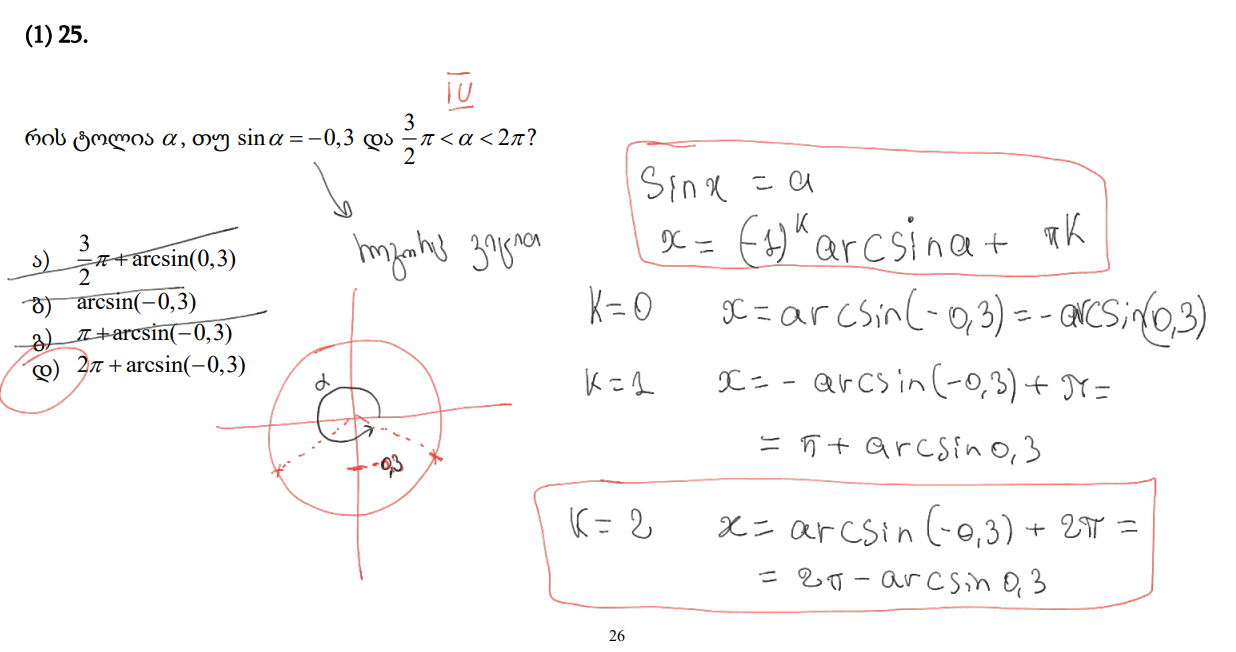 (1) 25.
IV
რის ტოლია α, თუ sin α = −0,3 და 3/2 π < α < 2π?
ა) 3/2 π + arcsin(0,3)
ბ) arcsin(−0,3)
გ) π + arcsin(−0,3)
დ) 2π + arcsin(−0,3)
α
-0,3
Sinx = a
x = (-1)^k arcsin a + πk
K=0 x = arcsin(-0,3) = - arcsin(0,3)
K=1 x = - arcsin(-0,3) + π =
= π + arcsin 0,3
K=2 x = arcsin(-0,3) + 2π =
= 2π - arcsin 0,3
26